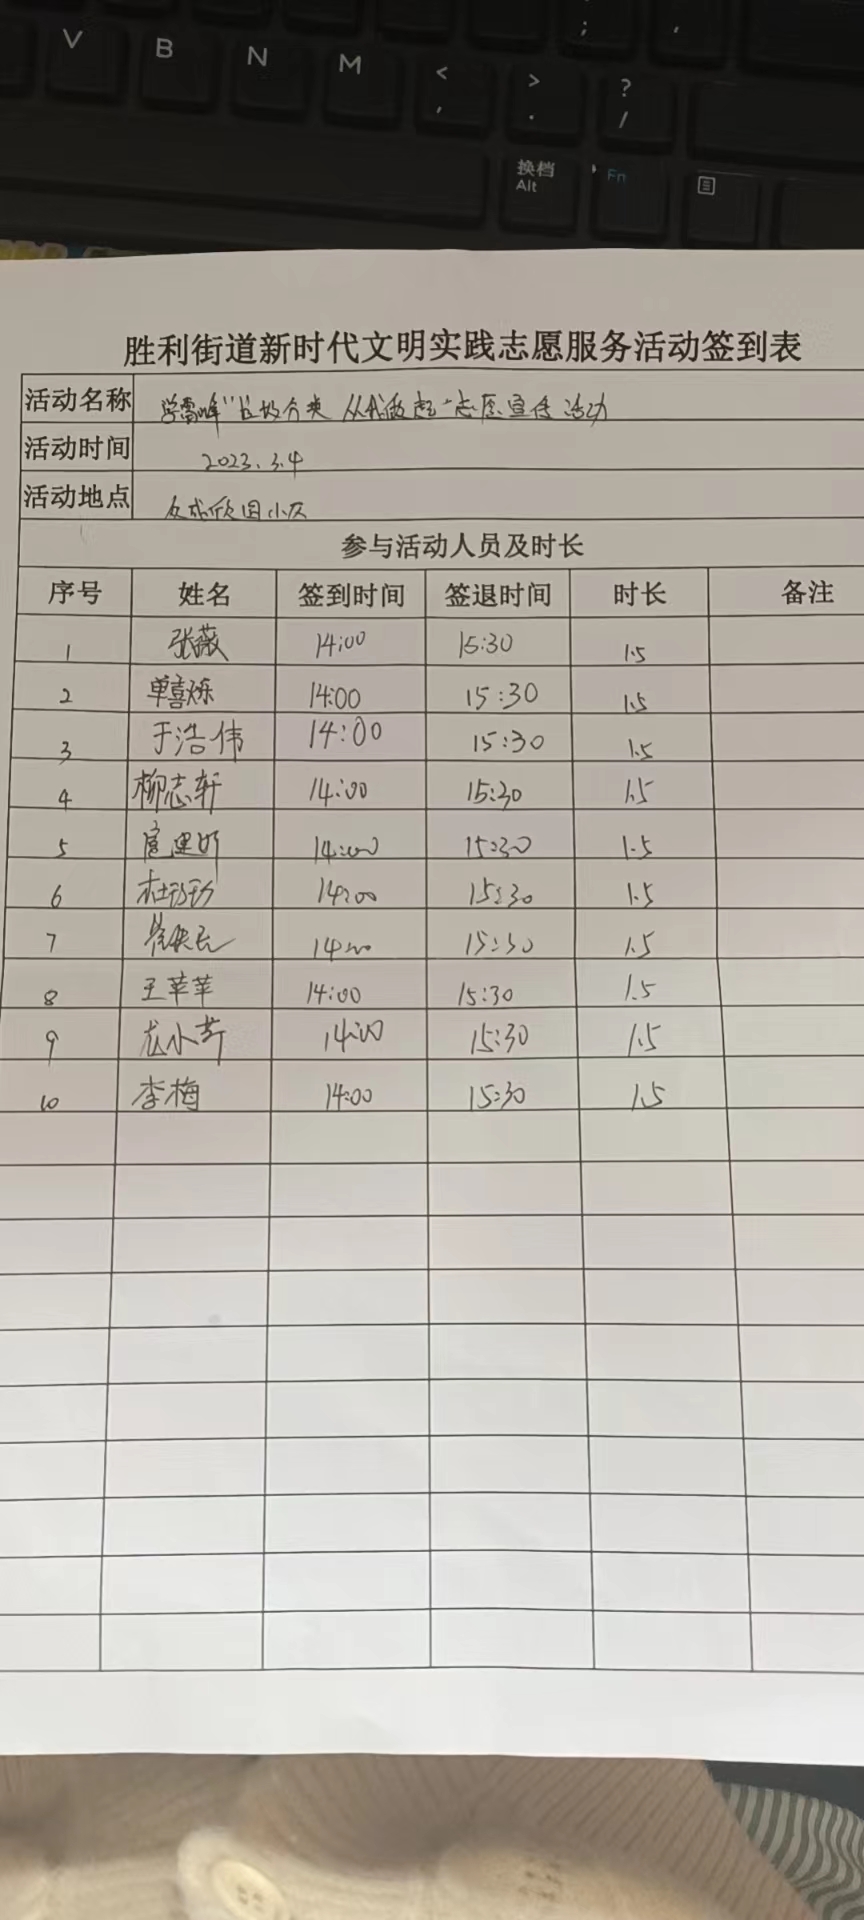 V B N M < ,
> .
? /
;
,
换档
Alt
Fn
胜利街道新时代文明实践志愿服务活动签到表
活动名称 学雷峰"垃圾分类 从我做起"志愿宣传活动
活动时间 2023.3.4
活动地点 众成欣园小区
参与活动人员及时长
序号 姓名 签到时间 签退时间 时长 备注
1 张薇 14:00 15:30 1.5
2 单喜烁 14:00 15:30 1.5
3 于浩伟 14:00 15:30 1.5
4 柳志轩 14:00 15:30 1.5
5 14:00 15:30 1.5
6 14:00 15:30 1.5
7 14:00 15:30 1.5
8 王苹苹 14:00 15:30 1.5
9 14:00 15:30 1.5
10 李梅 14:00 15:30 1.5